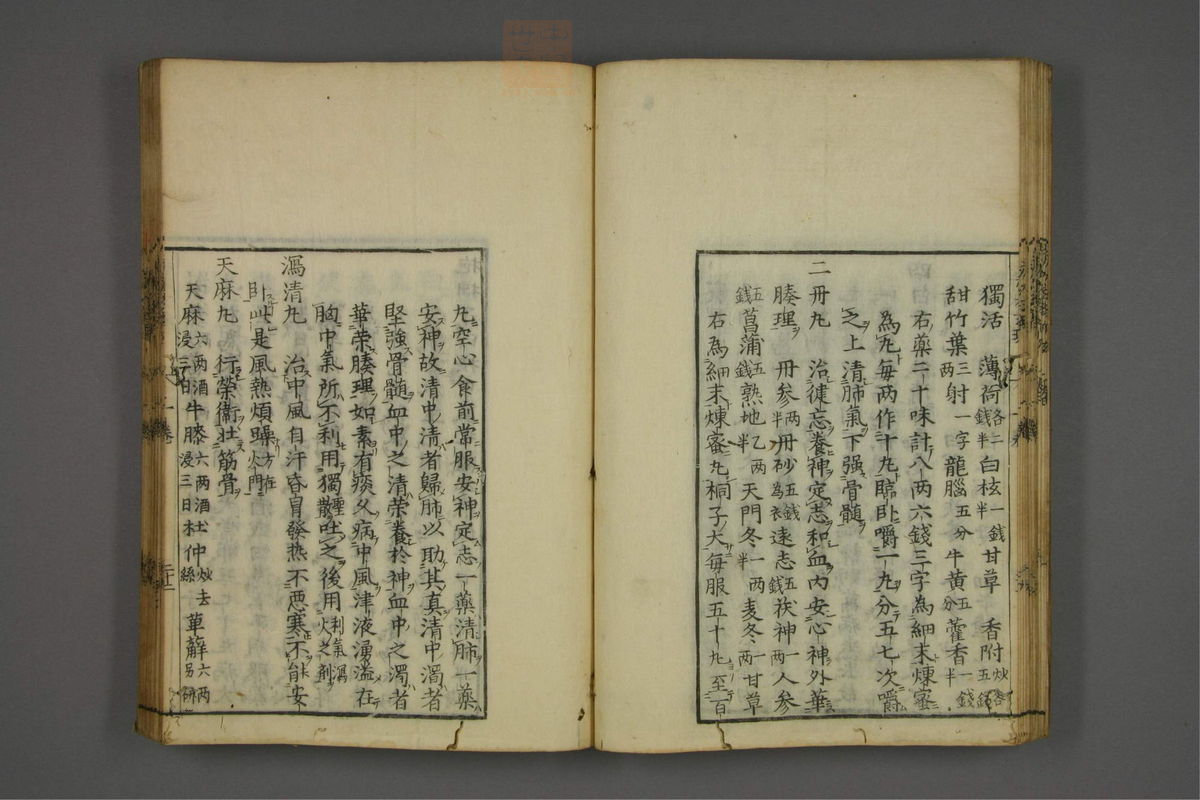 獨活 薄荷各二錢半 白枝一錢半 甘草 香附炒各五錢
甜竹葉三兩 射一字 龍腦五分 牛黃五分 藿香一錢半
右藥二十味計八兩六錢三字為細末煉蜜
為丸每兩作十丸臨臥嚼一丸分五七次嚼
之上清肺氣下强骨髓
二冊丸 治徤忘養神定志和血內安心神外華
腠理 冊參兩半 冊砂五錢為衣 遠志五錢 茯神一兩 人参
五錢 菖蒲五錢 熟地乙兩半 天門冬一兩半 麦冬一兩 甘草
右為細末煉蜜丸桐子大每服五十丸至百
丸空心食前常服安神定志一藥清肺一藥
安神故清中清者歸肺以助其真清中濁者
堅強骨髓血中之清榮養於神血中之濁者
華荣腠理如素有痰久病中風津液湧溢在
胸中氣所不利用獨聖散吐之後用利氣瀉火之剤
瀉清丸 治中風自汗昏冒發热不惡寒不能安
卧此是風熱煩躁方在火門
天麻丸 行榮衞壮筋骨
天麻六兩酒浸三日 牛膝六兩酒浸三日 杜仲炒去絲 萆薢六兩另研